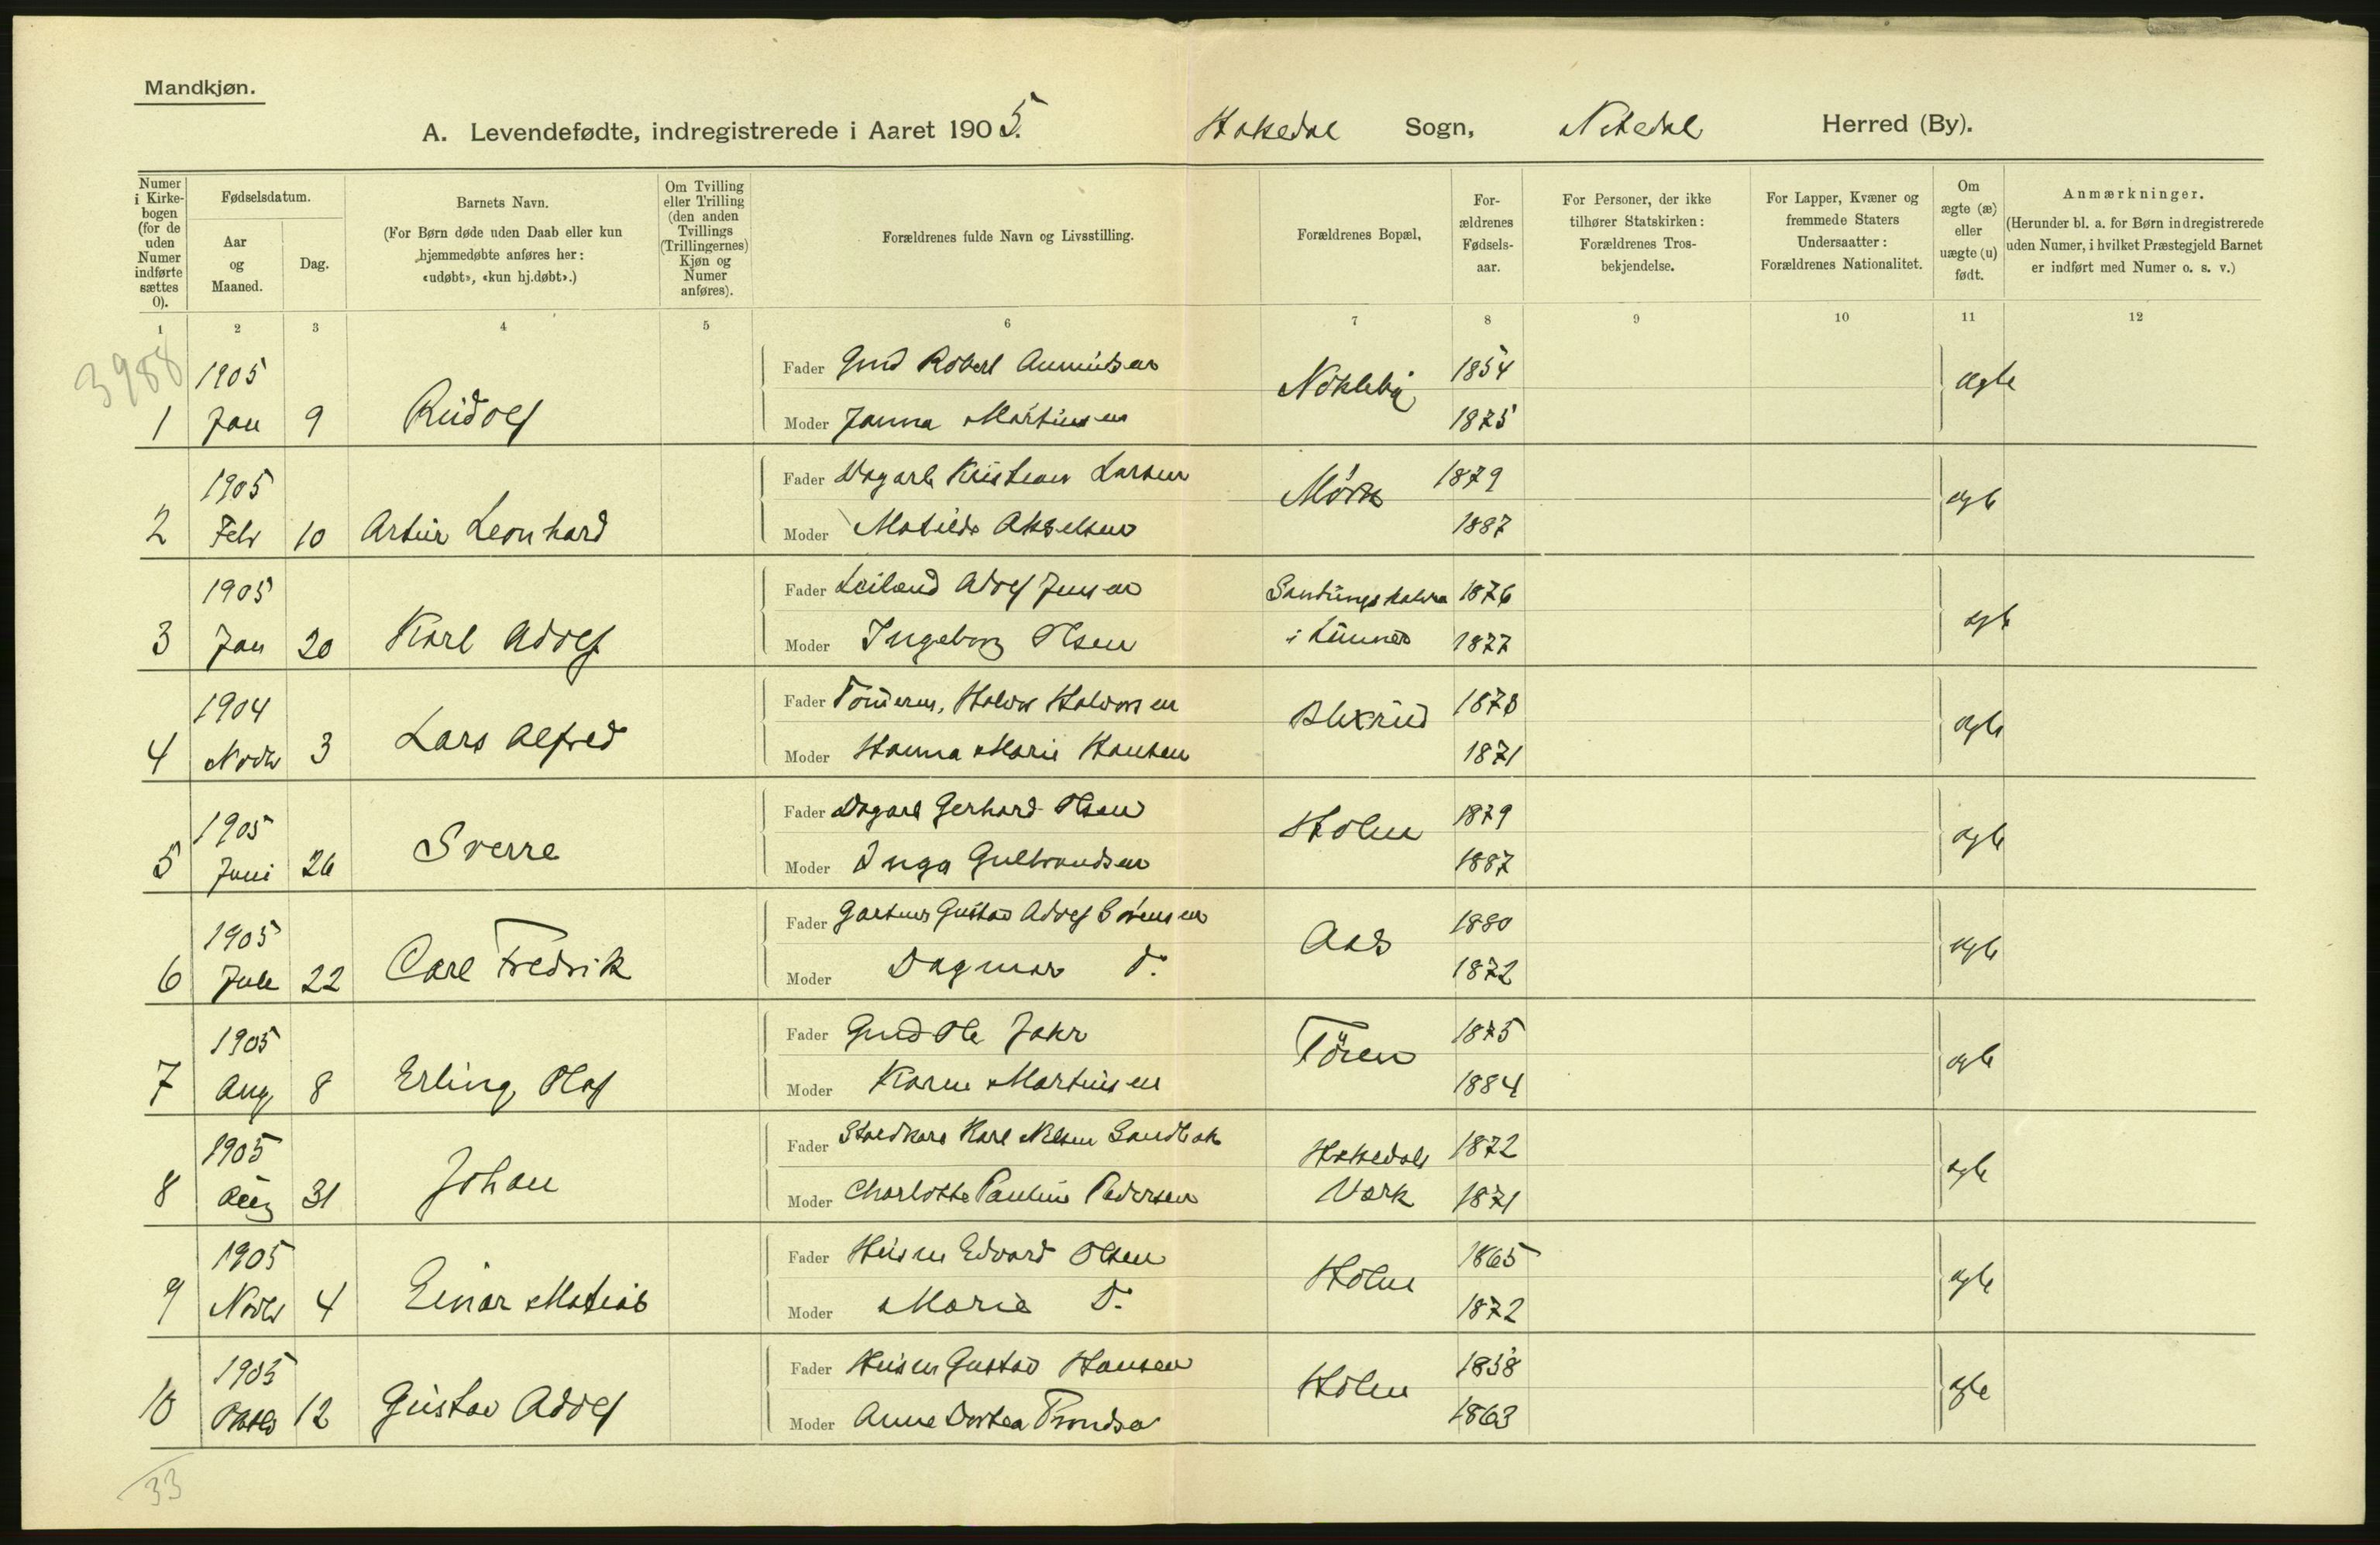 Mandkjøn.
A. Levendefødte, indregistrerede i Aaret 1905. Hakedal Sogn, Nitedal Herred (By).
Numer i Kirkebogen (for de uden Numer indførte sættes 0).
Fødselsdatum.
Aar og Maaned.
Dag.
Barnets Navn.
(For Børn døde uden Daab eller kun hjemmedøbte anføres her: «udøbt», «kun hj.døbt».)
Om Tvilling eller Trilling (den anden Tvillings (Trillingernes) Kjøn og Numer anføres).
Forældrenes fulde Navn og Livsstilling.
Forældrenes Bopæl,
Forældrenes Fødselsaar.
For Personer, der ikke tilhører Statskirken: Forældrenes Trosbekjendelse.
For Lapper, Kvæner og fremmede Staters Undersaatter: Forældrenes Nationalitet.
Om ægte (æ) eller uægte (u) født.
Anmærkninger.
(Herunder bl. a. for Børn indregistrerede uden Numer, i hvilket Præstegjeld Barnet er indført med Numer o. s. v.)
1 2 3 4 5 6 7 8 9 10 11 12
3988
1905 Fader Gmd Robert 1854
1 Jan 9 Rudolf Nökleby ægte
Moder Janna Martinsen 1875
1905 Fader Dagarb Kristian Larsen 1879
2 Febr 10 Artur Leonhard Mörk ægte
Moder Matilde Akselsen 1887
1905 Fader Adolf Jensen 1876
3 Jan 20 Karl Adolf i Lunner ægte
Moder Ingeborg Olsen 1877
1904 Fader Halvor Halvorsen 1878
4 Novbr 3 Lars Alfred ægte
Moder Hanna Marie Hansen 1871
1905 Fader Dagarb Gerhard Olsen 1879
5 Juni 26 Sverre Holm ægte
Moder Inga Gulbrandsen 1887
1905 Fader Gartner Gustav Adolf Sörensen 1880
6 Juli 22 Carl Fredrik Aas ægte
Moder Dagmar D. 1872
1905 Fader Gmd Ole Jahr 1875
7 Aug 8 Erling Olaf Töien ægte
Moder Karen Martinsen 1884
1905 Fader Staldkarl Karl Nilsen Sandbak Hakedals 1872
8 Aug 31 Johan ægte
Moder Charlotte Pauline Pedersen Værk 1871
1905 Fader Husm Edvard Olsen 1865
9 Novbr 4 Einar Matias Holm ægte
Moder Marie D. 1872
1905 Fader Husm Gustav Hansen 1858
10 Oktbr 12 Gustav Adolf Holm ægte
Moder Anne Dortea 1863
33